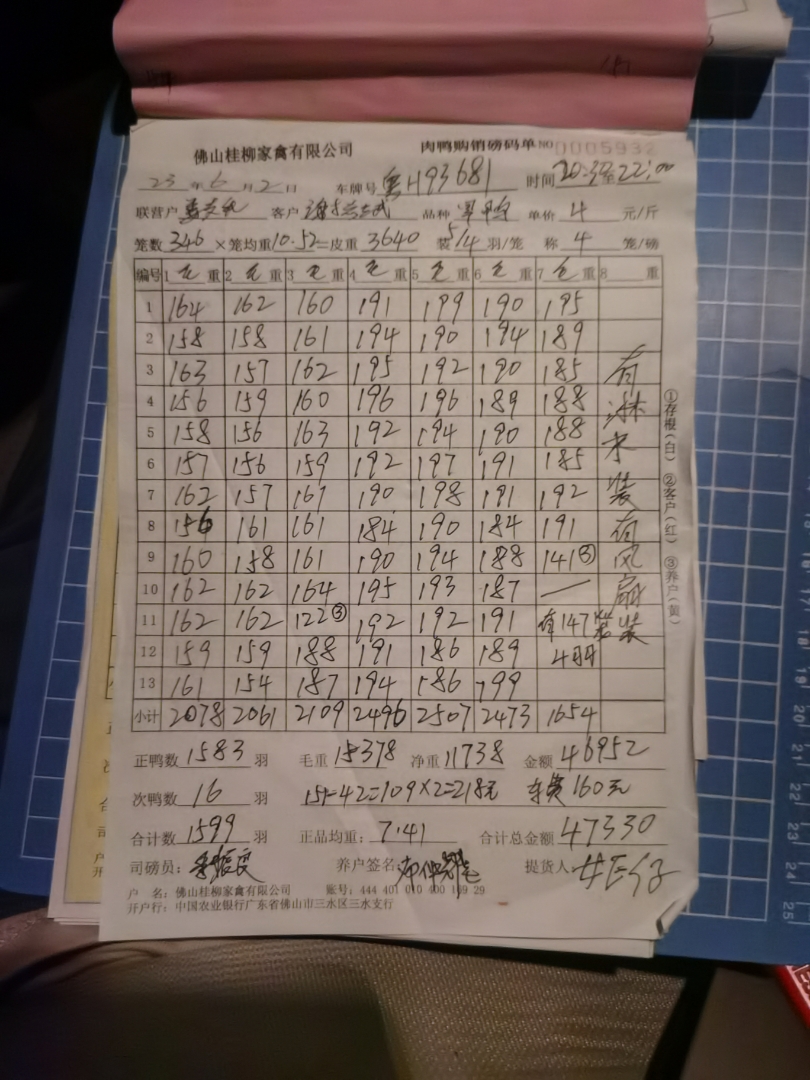 佛山桂柳家禽有限公司 肉鸭购销磅码单 NO 0005932
23年6月2日 车牌号 粤H93681 时间 20:30至22:00
联营户 客户 品种 单价 4 元/斤
笼数 346 ×笼均重 10.52 =皮重 3640 装 5/4 羽/笼 称 4 笼/磅
编号 1 毛 重 2 毛 重 3 毛 重 4 毛 重 5 毛 重 6 毛 重 7 毛 重 8 重
1 164 162 160 191 199 190 195
2 158 158 161 194 190 194 189
3 163 157 162 195 192 190 185
4 156 159 160 196 196 189 188
5 158 156 163 192 194 190 188
6 157 156 159 192 197 191 185
7 162 157 161 190 198 191 192
8 156 161 161 184 190 184 191
9 160 158 161 190 194 188 141③
10 162 162 164 195 193 187 —
11 162 162 122③ 192 192 191 有147笼装
12 159 159 188 191 186 189 4羽
13 161 154 187 194 186 199
小计 2078 2061 2109 2496 2507 2473 1654
有淋水装有风扇装
①存根(白) ②客户(红) ③养户(黄)
正鸭数 1583 羽 毛重 15378 净重 11738 金额 46952
次鸭数 16 羽 151-42=109×2=218元 车费160元
合计数 1599 羽 正品均重: 7.41 合计总金额 47330
司磅员: 养户签名: 提货人
户 名: 佛山桂柳家禽有限公司 账号: 444 401 010 400 169 29
开户行: 中国农业银行广东省佛山市三水区三水支行